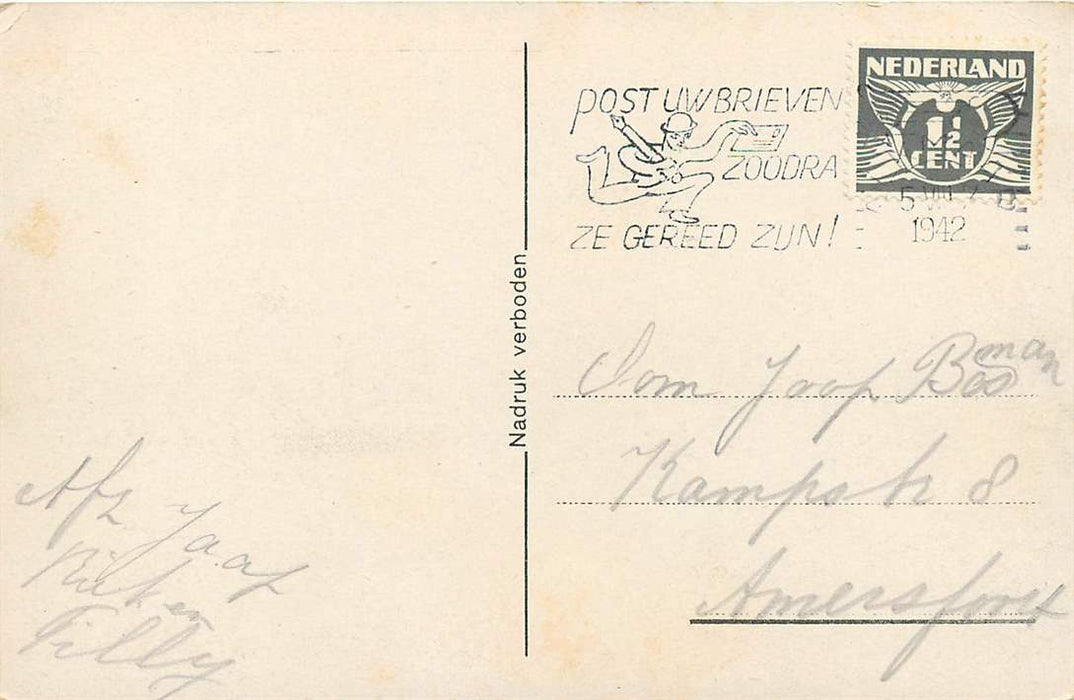 POST UW BRIEVEN
ZOODRA
ZE GEREED ZIJN!
NEDERLAND
1½
CENT
5 VIII
1942
Nadruk verboden
Oom Jaap Bosman
Kampstr 8
Amersfoort
Afz Jaap
Riek en
Tilly